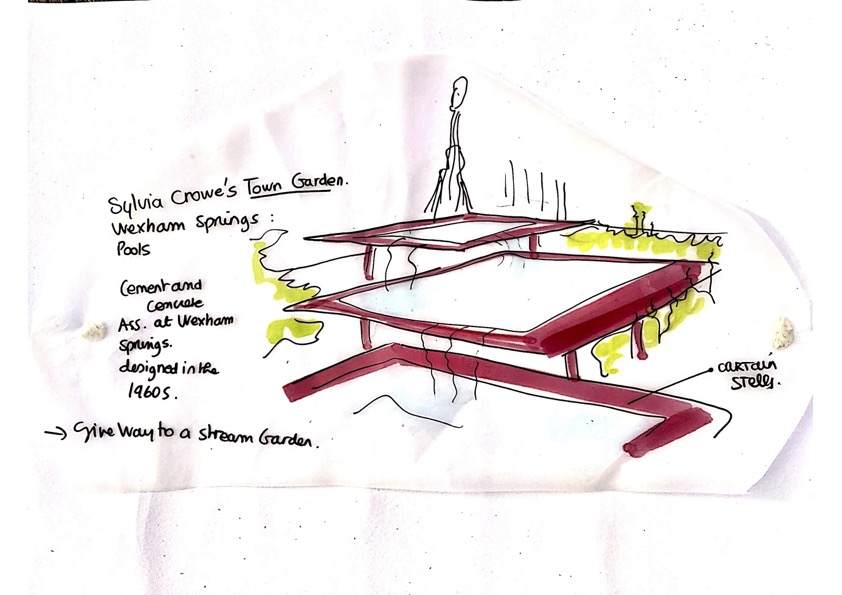 Sylvia Crowe's Town Garden.
Wexham Springs :
Pools
Cement and
Concrete
Ass. at Wexham
Springs.
designed in the
1960s.
→ Give Way to a Stream Garden.
CARTAIN
STELLS.